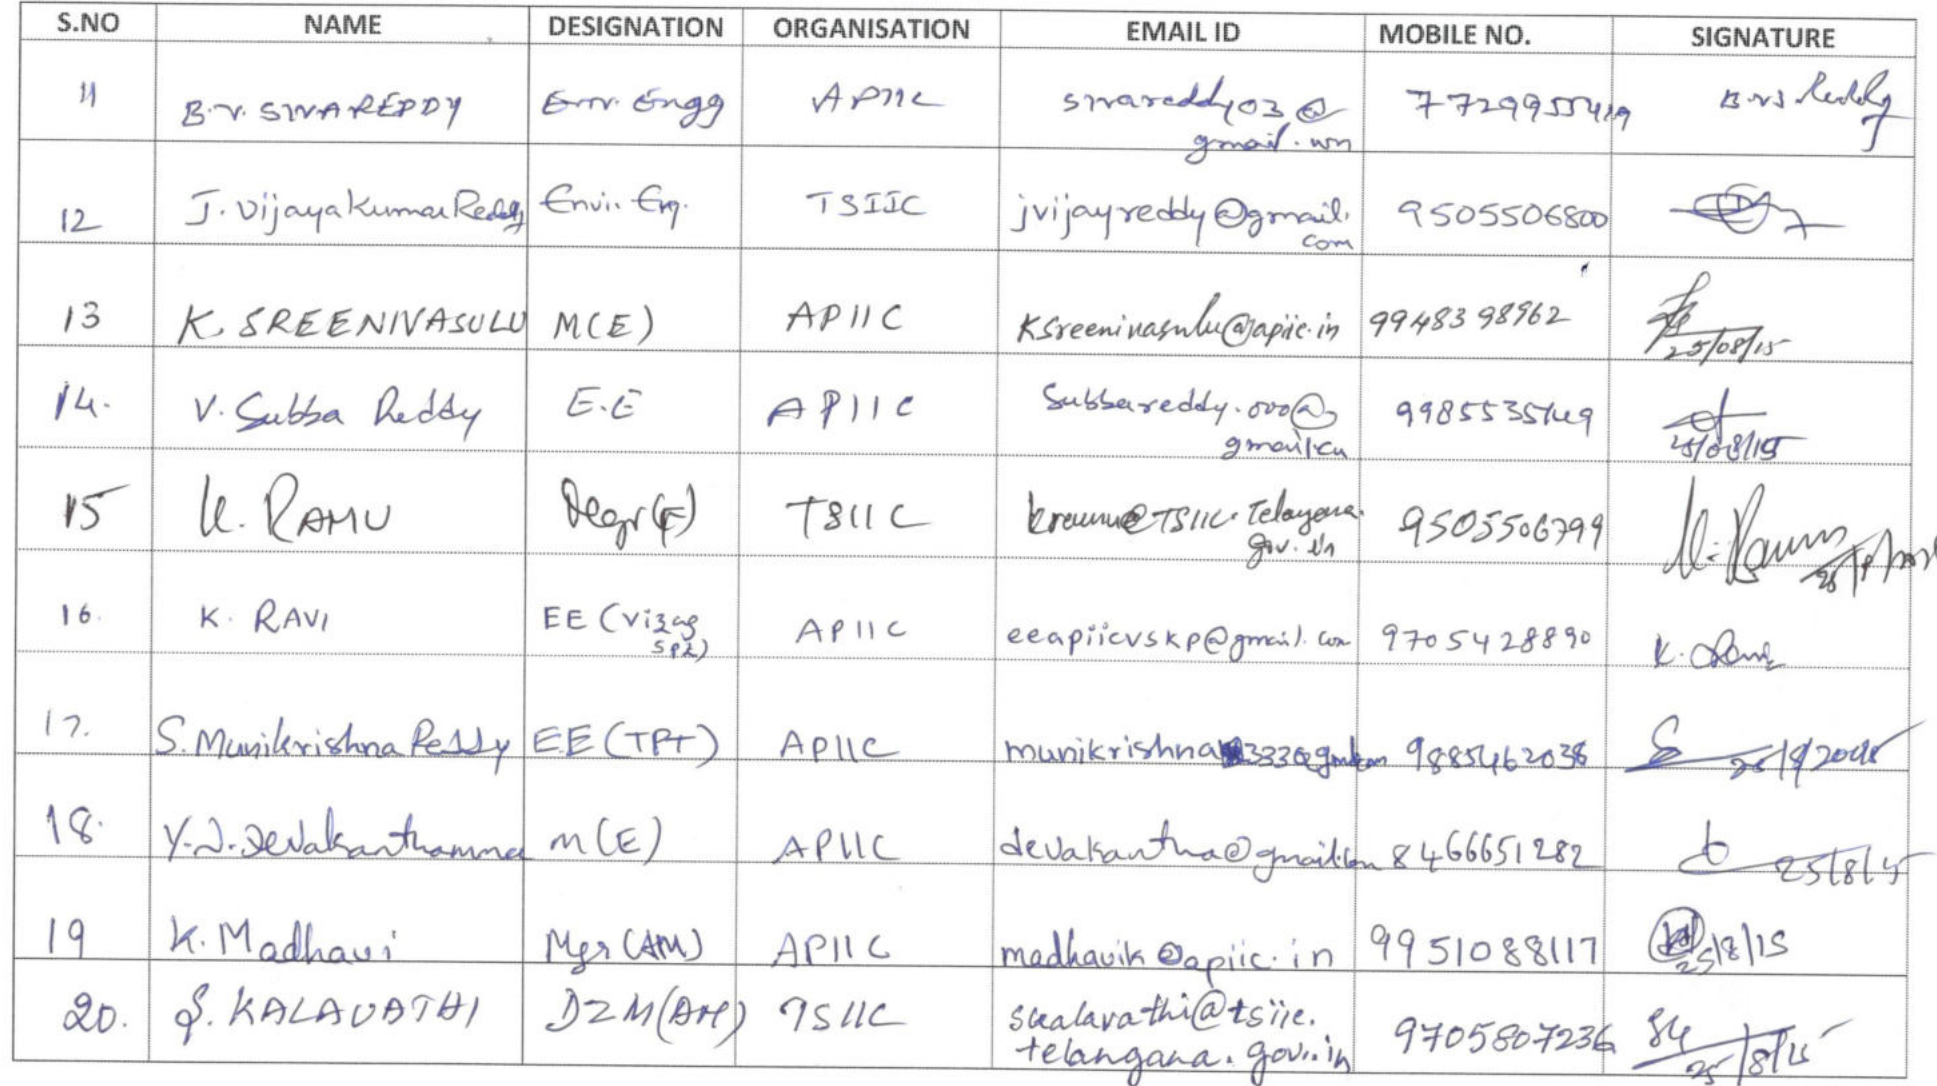 S.NO NAME DESIGNATION ORGANISATION EMAIL ID MOBILE NO. SIGNATURE
11 B.V. SIVA REDDY Env. Engg APIIC sivareddy03@ 7729955419 B.V.S. Reddy
gmail.com
12 J. Vijaya Kumar Reddy Envi. Eng. TSIIC jvijayreddy@gmail. 9505506800
com
13 K. SREENIVASULU M(E) APIIC Ksreenivasulu@apiic.in 9948398962
25/08/15
14. V. Subba Reddy E.E APIIC Subbareddy.000@ 9985535149
gmail.com 25/08/15
15 K. RAMU TSIIC kramu@TSIIC.Telangana. 9505506799 K. Ramu
gov.in
16. K. RAVI EE (Vizag APIIC eeapiicvskp@gmail.com 9705428890 K. Ravi
SPL)
17. S. Munikrishna Reddy EE (TPT) APIIC 9885462038
18. Y.J. Devakanthamma M(E) APIIC devakantha@gmail.com 8466651282 25/8/15
19 K. Madhavi Mgr (AM) APIIC madhavik@apiic.in 9951088117 25/8/15
20. S. KALAVATHI DZM(AM) TSIIC skalavathi@tsiic. 9705807236
telangana.gov.in 25/8/15